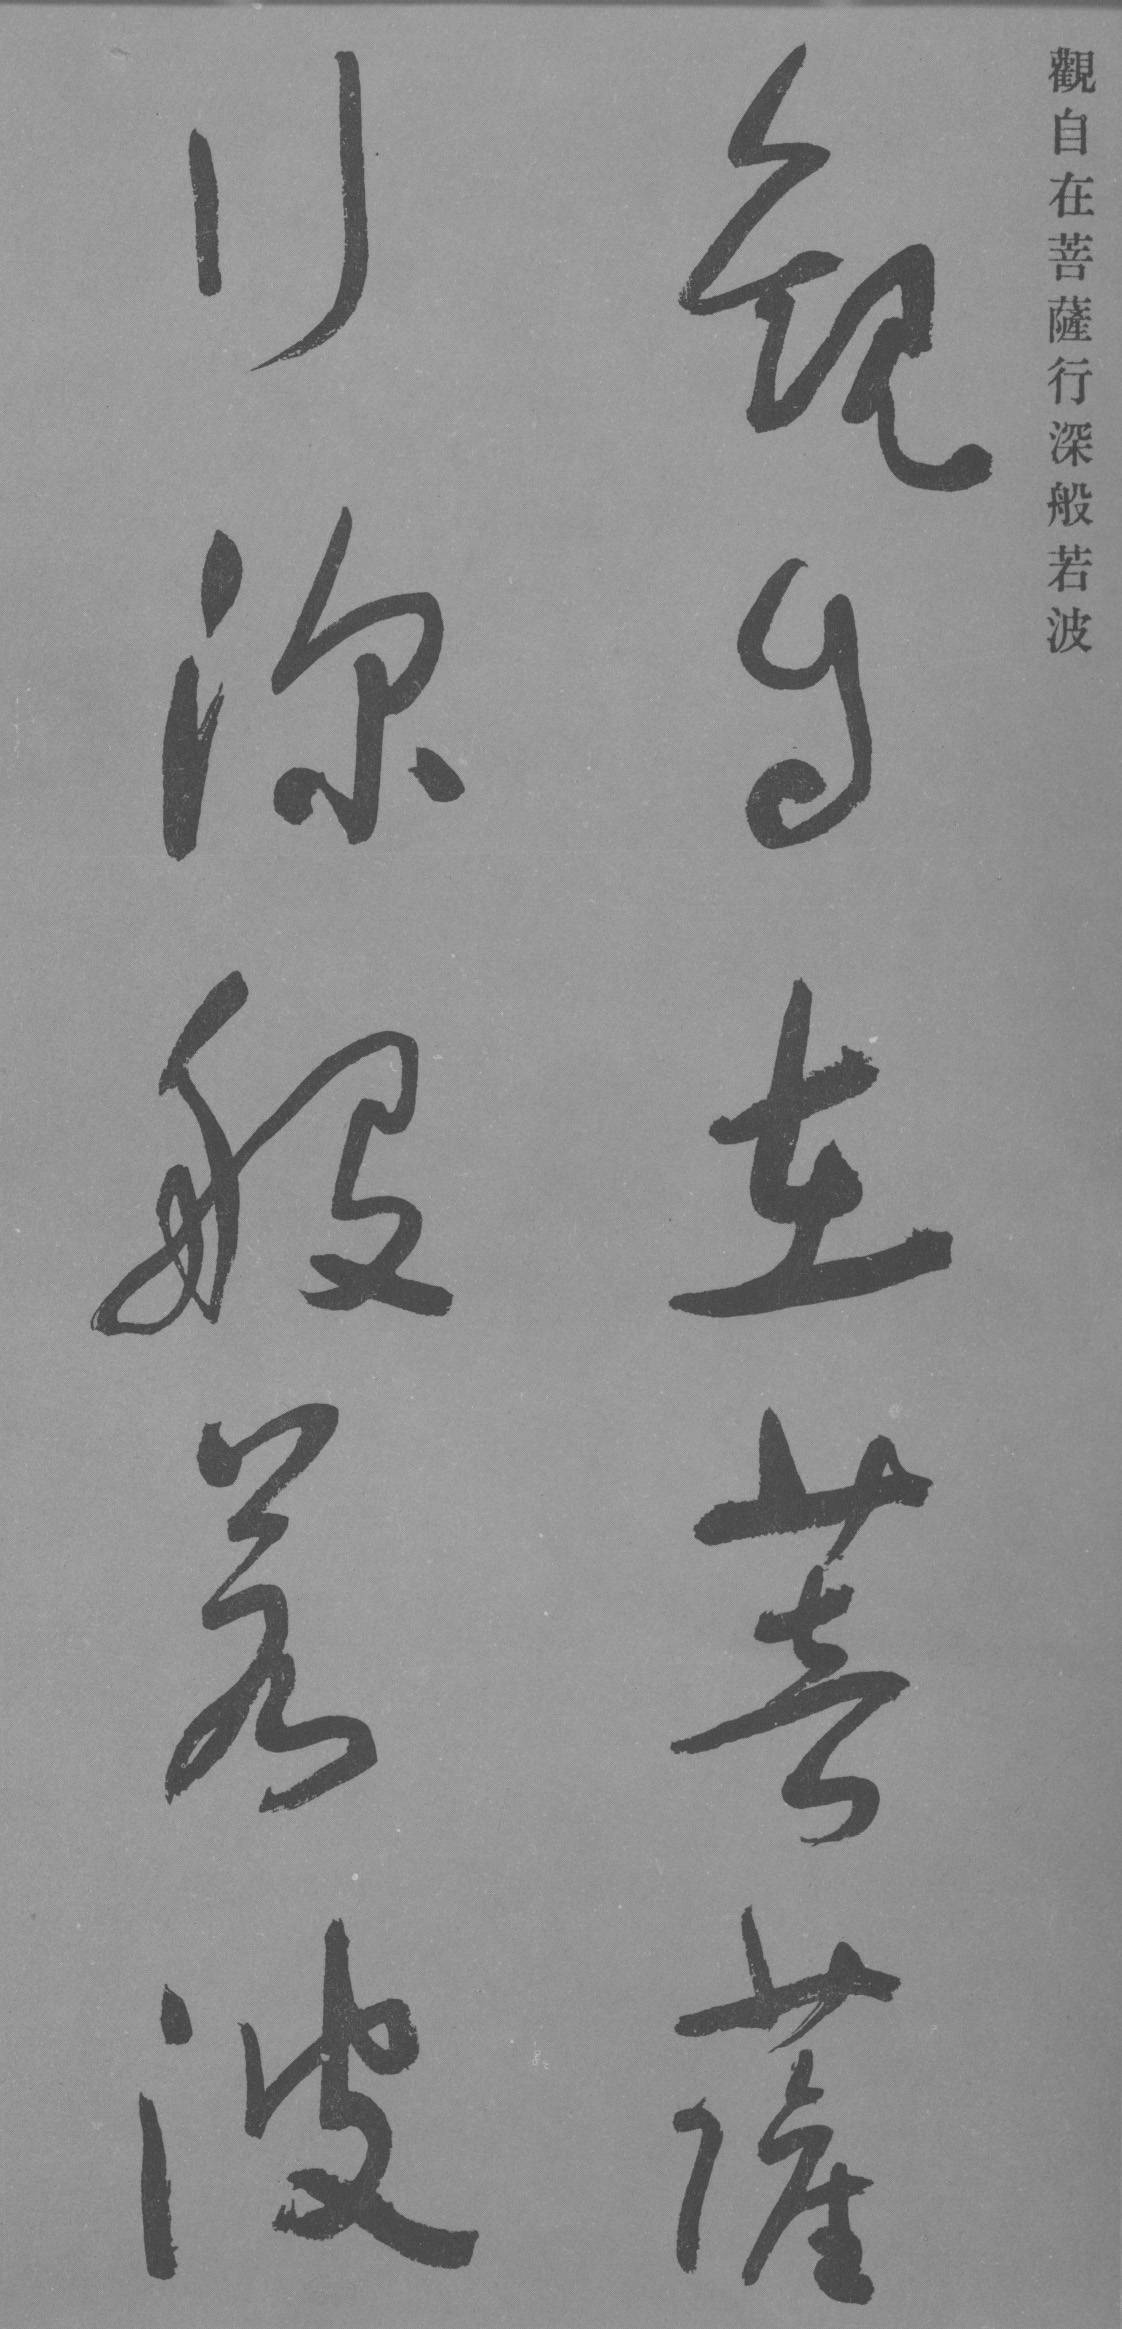 觀自在菩薩行深般若波
觀自在菩薩
行深般若波